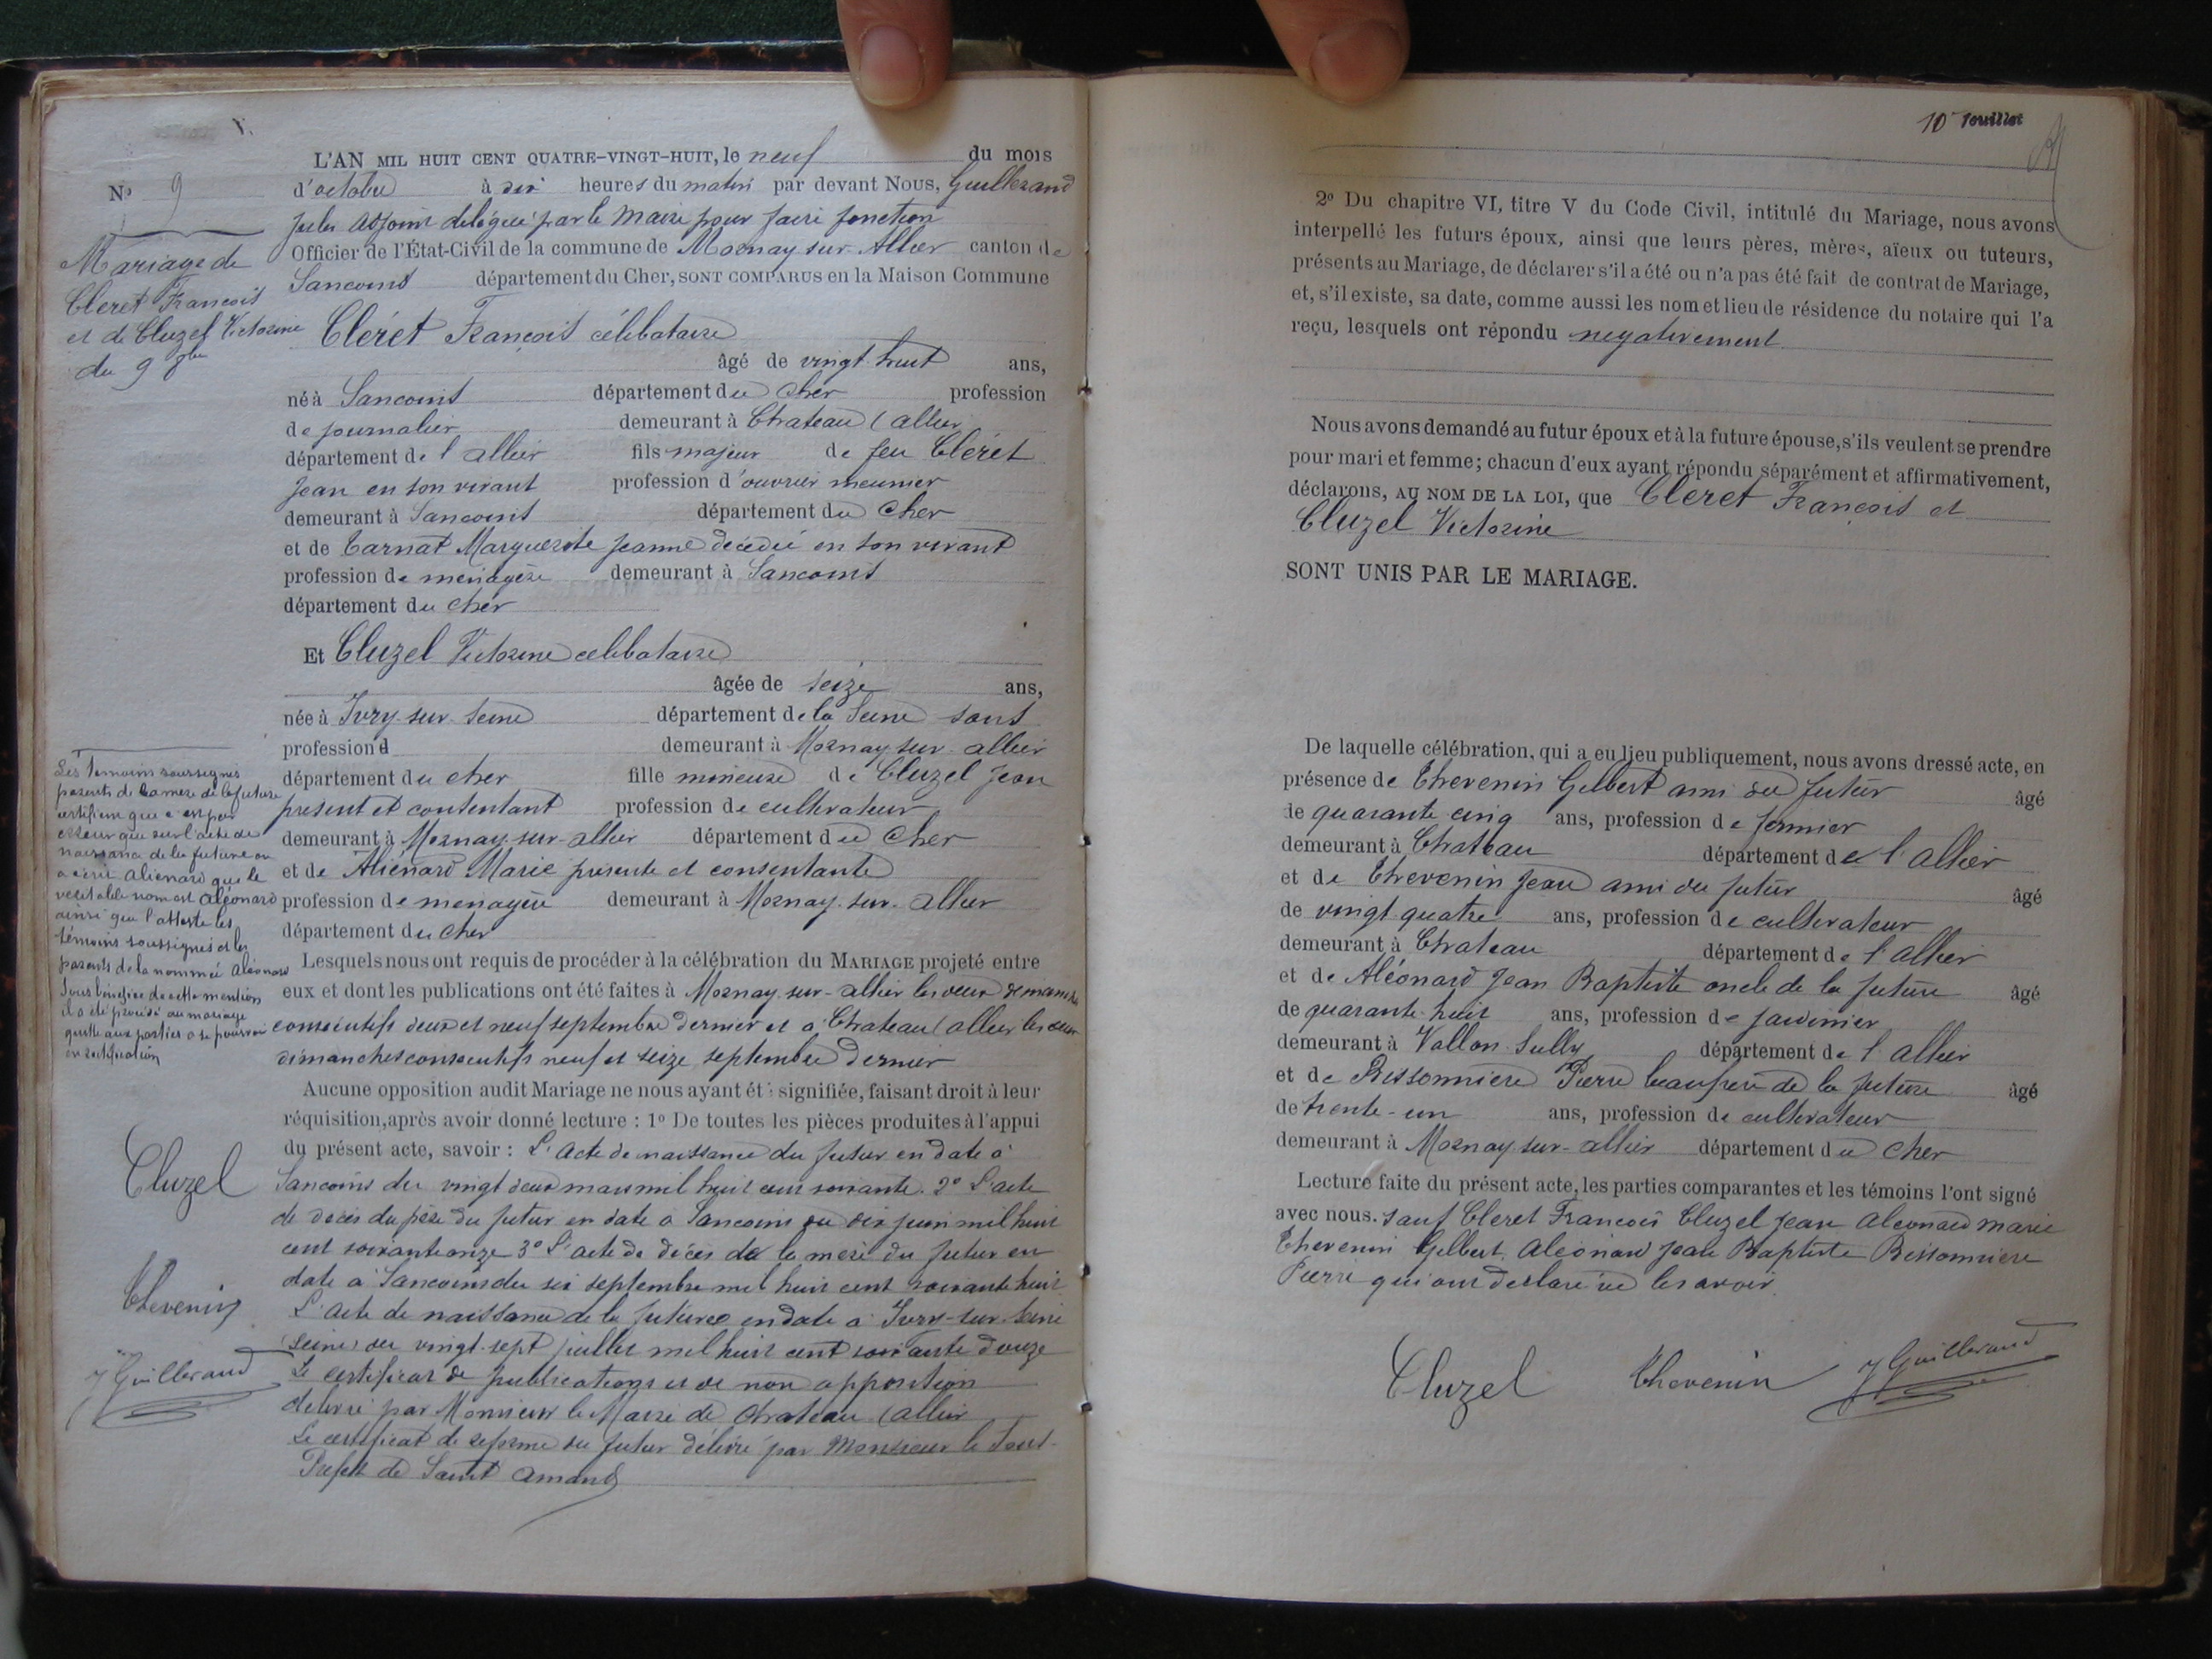 N° 9
Mariage de
Cleret François
et de Cluzel Victorine
du 9 8bre
L'AN MIL HUIT CENT QUATRE-VINGT-HUIT, le neuf du mois
d'octobre à dix heures du matin par devant Nous, Guillerand
Jules adjoint délégué par le Maire pour faire fonction
Officier de l'État-Civil de la commune de Mornay sur Allier canton de
Sancoins département du Cher, SONT COMPARUS en la Maison Commune
Cléret François célibataire
âgé de vingt huit ans,
né à Sancoins département du Cher profession
de journalier demeurant à Chateau (allier
département de l'allier fils majeur de feu Cléret
Jean en son vivant profession d'ouvrier meunier
demeurant à Sancoins département du Cher
et de Tarnat Marguerite Jeanne décédée en son vivant
profession de ménagère demeurant à Sancoins
département du Cher
Et Cluzel Victorine celibataire
âgée de seize ans,
née à Ivry-sur-Seine département de la Seine sans
profession d demeurant à Mornay-sur-allier
département du cher fille mineure de Cluzel Jean
présent et consentant profession de cultivateur
demeurant à Mornay-sur-allier département du Cher
et de Aliénard Marie présente et consentante
profession de menagère demeurant à Mornay-sur-allier
département du Cher
Lesquels nous ont requis de procéder à la célébration du MARIAGE projeté entre
eux et dont les publications ont été faites à Mornay-sur-allier les deux dimanches
consécutifs deux et neuf septembre dernier et à Chateau (allier les deux
dimanches consecutifs neuf et seize septembre dernier
Aucune opposition audit Mariage ne nous ayant été signifiée, faisant droit à leur
réquisition, après avoir donné lecture : 1° De toutes les pièces produites à l'appui
du présent acte, savoir : L'acte de naissance du futur en date à
Sancoins du vingt deux mars mil huit cent soixante. 2° L'acte
de décès du père du futur en date à Sancoins du dix juin mil huit
cent soixante onze 3° L'acte de décès de la mère du futur en
date à Sancoins du six septembre mil huit cent soixante huit
L'acte de naissance de la future en date à Ivry-sur-Seine
(Seine) du vingt-sept juillet mil huit cent soixante douze
Le certificat de publications et de non opposition
délivré par Monsieur le Maire de Chateau (allier
Le certificat de réforme du futur délivré par Monsieur le Sous-
Préfet de Saint Amand
Les Temoins soussignés
parents de la mere de la future
certifient que c'est par
erreur que sur l'acte de
naissance de la future on
a écrit alienard que le
veritable nom est Aléonard
ainsi que l'atteste les
témoins soussignés et les
parents de la nommée Aléonard
Sous bénéfice de cette mention
il a été procédé au mariage
quitte aux parties à se pourvoir
en rectification
Cluzel
Thevenin
J Guillerand
10e feuillet
2° Du chapitre VI, titre V du Code Civil, intitulé du Mariage, nous avons
interpellé les futurs époux, ainsi que leurs pères, mères, aïeux ou tuteurs,
présents au Mariage, de déclarer s'il a été ou n'a pas été fait de contrat de Mariage,
et, s'il existe, sa date, comme aussi les nom et lieu de résidence du notaire qui l'a
reçu, lesquels ont répondu negativement
Nous avons demandé au futur époux et à la future épouse, s'ils veulent se prendre
pour mari et femme ; chacun d'eux ayant répondu séparément et affirmativement,
déclarons, AU NOM DE LA LOI, que Cleret François et
Cluzel Victorine
SONT UNIS PAR LE MARIAGE.
De laquelle célébration, qui a eu lieu publiquement, nous avons dressé acte, en
présence de Thevenin Gilbert ami du futur âgé
de quarante cinq ans, profession de fermier
demeurant à Chateau département de l'Allier
et de Thevenin Jean ami du futur âgé
de vingt quatre ans, profession de cultivateur
demeurant à Chateau département de l'Allier
et de Aléonard Jean Baptiste oncle de la future âgé
de quarante-huit ans, profession de jardinier
demeurant à Vallon Sully département de l'Allier
et de Bissonniere Pierre beaufrère de la future âgé
de trente-un ans, profession de cultivateur
demeurant à Mornay-sur-allier département du Cher
Lecture faite du présent acte, les parties comparantes et les témoins l'ont signé
avec nous. sauf Cleret François Cluzel Jean Aleonard marie
Thevenin Gilbert Aléonard Jean Baptiste Bissonniere
Pierre qui ont déclaré ne les avoir.
Cluzel Thevenin J Guillerand